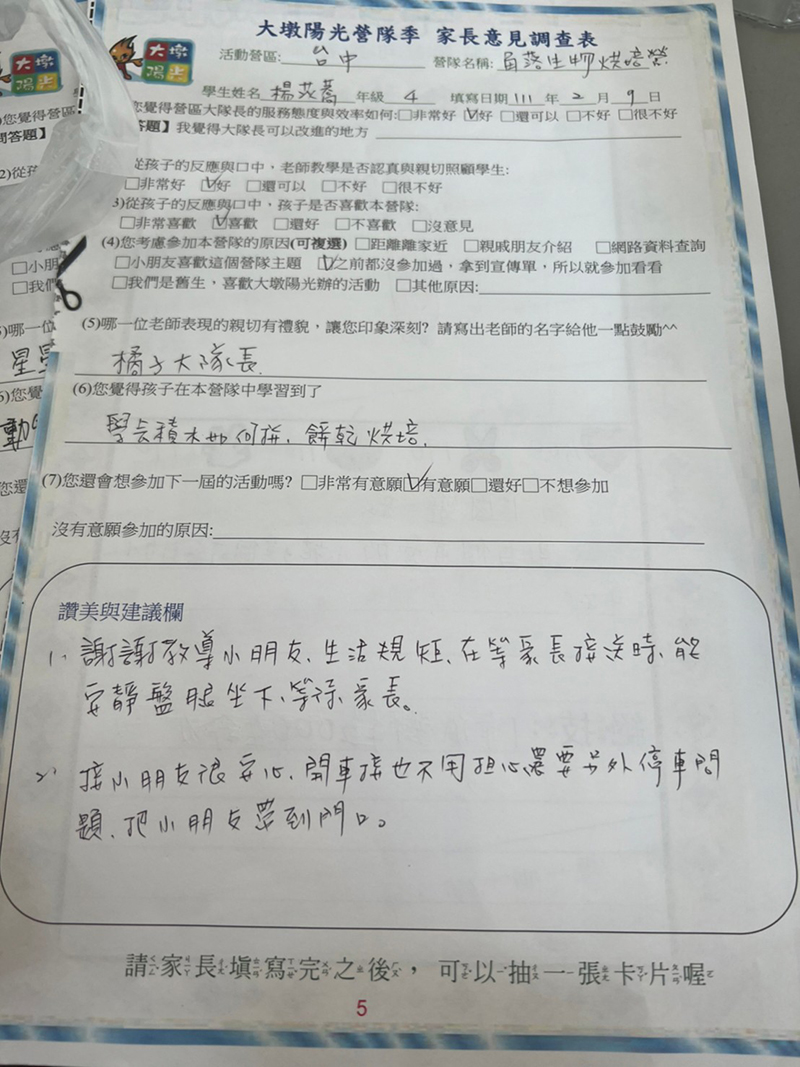 大墩陽光營隊季 家長意見調查表
大墩
陽光
活動營區: 台中 營隊名稱: 角落生物烘焙營
學生姓名 楊 年級 4 填寫日期 111 年 2 月 9 日
您覺得營區大隊長的服務態度與效率如何:□非常好 ☑好 □還可以 □不好 □很不好
答題】我覺得大隊長可以改進的地方
從孩子的反應與口中,老師教學是否認真與親切照顧學生:
□非常好 ☑好 □還可以 □不好 □很不好
3)從孩子的反應與口中,孩子是否喜歡本營隊:
□非常喜歡 ☑喜歡 □還好 □不喜歡 □沒意見
(4)您考慮參加本營隊的原因(可複選) □距離離家近 □親戚朋友介紹 □網路資料查詢
□小朋友喜歡這個營隊主題 ☑之前都沒參加過,拿到宣傳單,所以就參加看看
□我們是舊生,喜歡大墩陽光辦的活動 □其他原因:
(5)哪一位老師表現的親切有禮貌,讓您印象深刻? 請寫出老師的名字給他一點鼓勵^^
橘子大隊長
(6)您覺得孩子在本營隊中學習到了
學長積木如何拼、餅乾烘培.
(7)您還會想參加下一屆的活動嗎? □非常有意願☑有意願□還好□不想參加
沒有意願參加的原因:
讚美與建議欄
1、謝謝教導小朋友、生活規矩、在等家長接送時、能
安靜盤腿坐下、等待家長。
2、接小朋友很安心、開車接也不用担心還要另外停車問
題、把小朋友帶到門口。
請家長填寫完之後,可以抽一張卡片喔
5